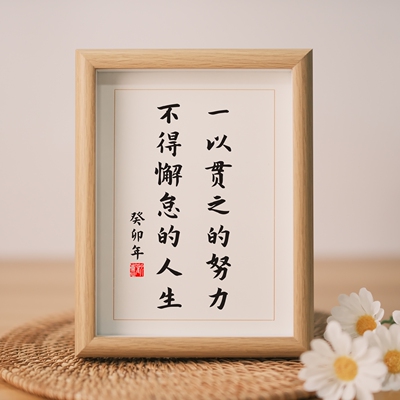 一以贯之的努力
不得懈怠的人生
癸卯年